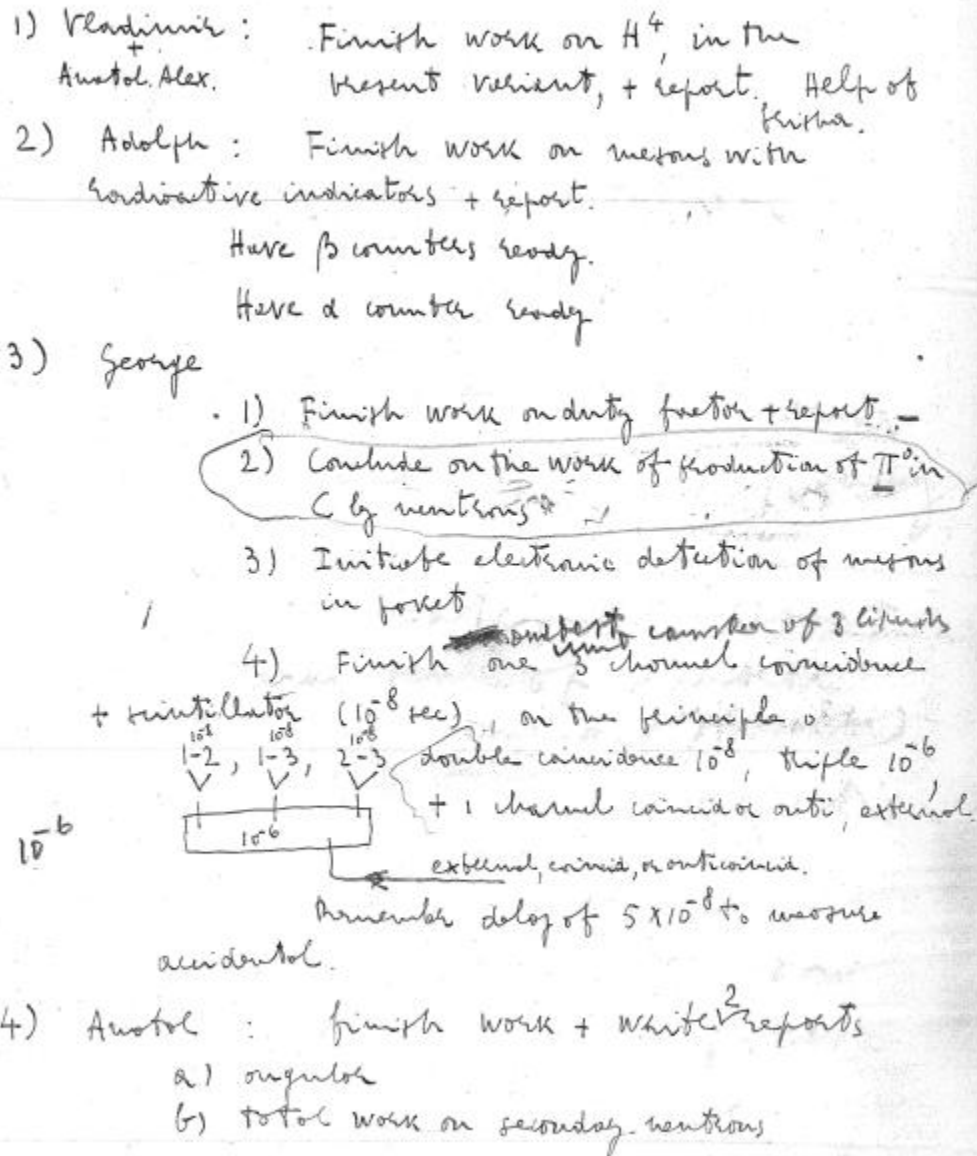 1) Vladimir :   Finish work on H⁴, in the
+
Anatol. Alex.   present variant, + report. Help of
Grisha.
2) Adolph :   Finish work on mesons with
radioactive indicators + report.
Have β counters ready.
Have α counter ready
3) George
1) Finish work on duty factor + report –
2) Conclude on the work of production of π⁰ in
C by neutrons
3) Initiate electronic detection of mesons
in poket
counter of 3 liquids
4) Finish one 3 channel coincidence
+ scintillator (10⁻⁸ sec), on the principle o
10⁻⁸ 10⁻⁸ 10⁻⁸
1-2, 1-3, 2-3 double coincidence 10⁻⁸, triple 10⁻⁶,
+ 1 channel coincid or anti, external
10⁻⁶
10⁻⁶
external, coincid, or anticoincid.
Remember delay of 5 x 10⁻⁸ to measure
accidental.
4) Anatol :   finish work + write 2 reports
a) angular
b) total work on secondary neutrons